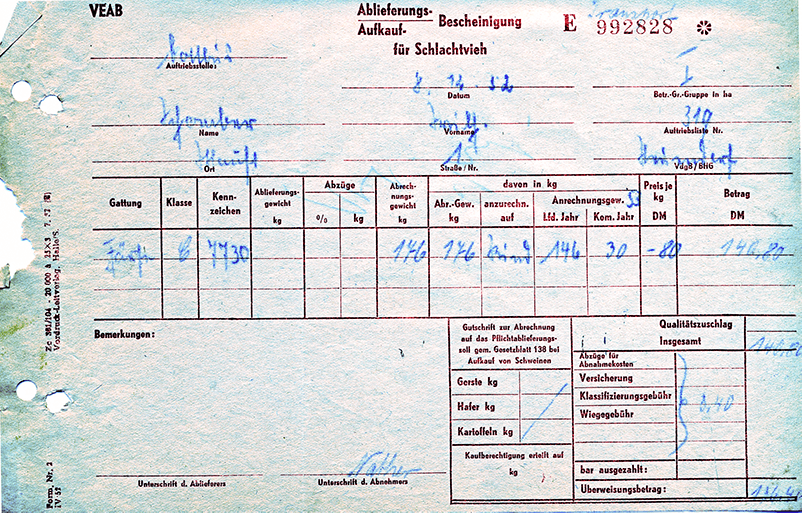 VEAB
Ablieferungs-
Aufkauf-
Bescheinigung
für Schlachtvieh
E 992828 *
Cottbus
Auftriebsstelle:
8. 12 52
Datum
I
Betr.-Gr.-Gruppe in ha
Name
Vorname
319
Auftriebsliste Nr.
Ort
1
Straße/Nr.
VdgB/BHG
Gattung
Klasse
Kenn-
zeichen
Ablieferungs-
gewicht
kg
Abzüge
%
kg
Abrech-
nungs-
gewicht
kg
davon in kg
Abr.-Gew.
kg
anzurechn.
auf
Anrechnungsgew. 53
Lfd. Jahr
Kom. Jahr
Preis je
kg
DM
Betrag
DM
Färse C 7730 176 176 Rind 146 30 -80 140,80
Bemerkungen:
Gutschrift zur Abrechnung
auf das Pflichtablieferungs-
soll gem. Gesetzblatt 138 bei
Aufkauf von Schweinen
Gerste kg
Hafer kg
Kartoffeln kg
Kaufberechtigung erteilt auf
kg
Qualitätszuschlag
Insgesamt
Abzüge für
Abnahmekosten
Versicherung
Klassifizierungsgebühr
Wiegegebühr
bar ausgezahlt:
Überweisungsbetrag:
Unterschrift d. Ablieferers
Unterschrift d. Abnehmers
Vordruck-Leitverlag, Halle/S.
Form. Nr. 2
IV 52